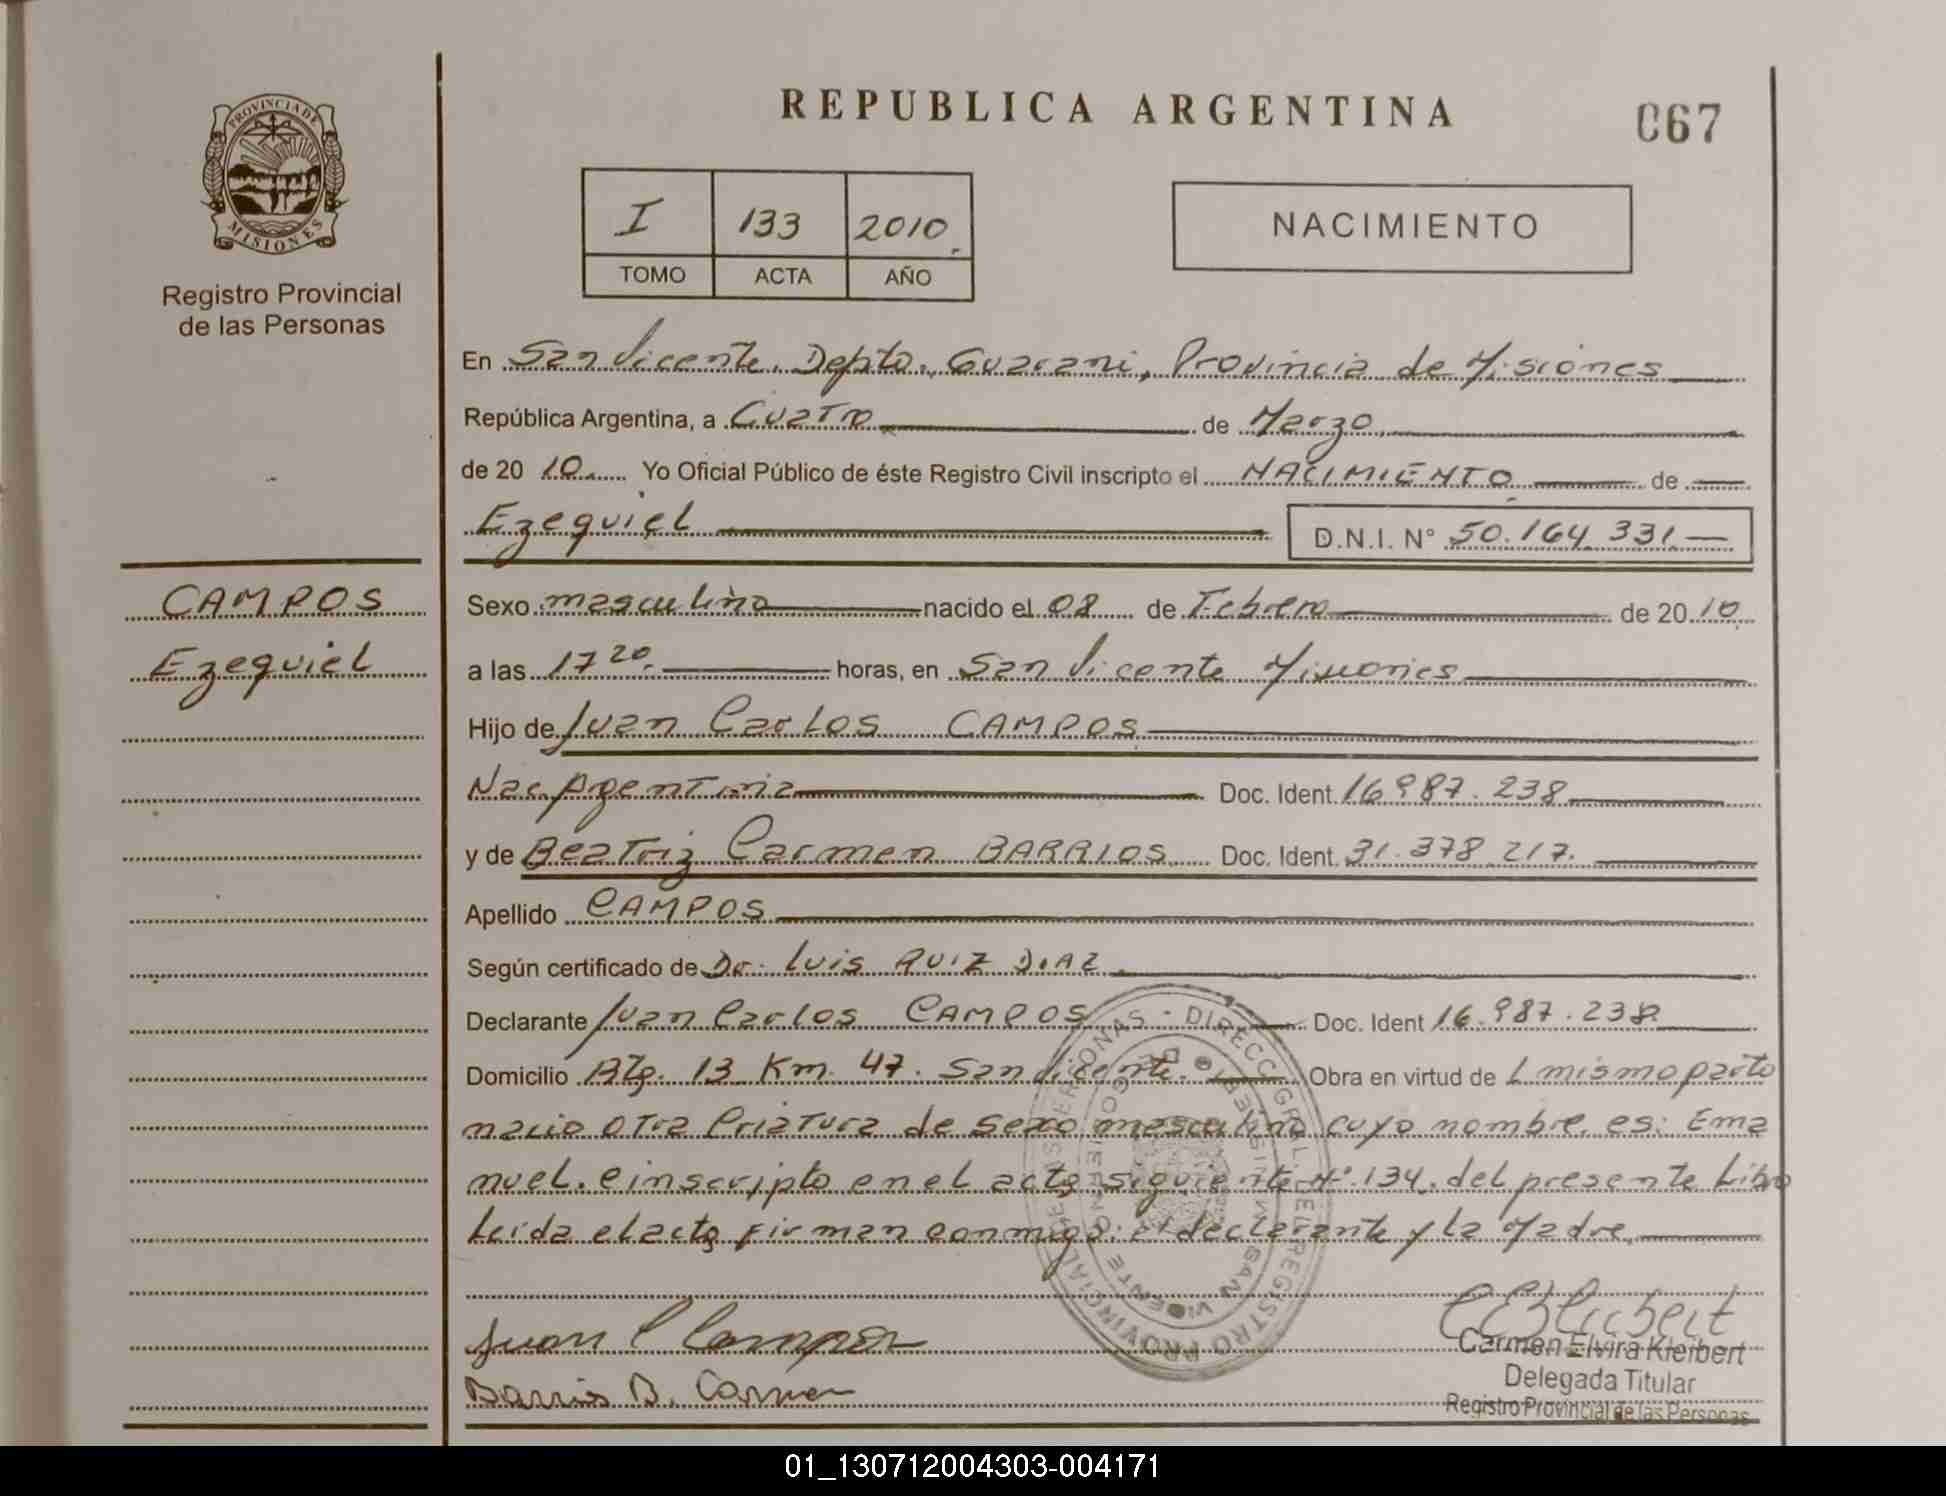 REPUBLICA ARGENTINA
067
PROVINCIA DE
MISIONES
Registro Provincial
de las Personas
I 133 2010
TOMO ACTA AÑO
NACIMIENTO
En San Vicente. Depto. Guarani, Provincia de Misiones
República Argentina, a Cuatro de Marzo
de 20 10 Yo Oficial Público de éste Registro Civil inscripto el NACIMIENTO de
Ezequiel D.N.I. N° 50.164.331.—
CAMPOS
Ezequiel
Sexo masculino nacido el 08 de Febrero de 20 10
a las 17 20 horas, en San Vicente Misiones
Hijo de Juan Carlos CAMPOS
Nac. Agentina Doc. Ident. 16.987.238
y de Beatriz Carmen BARRIOS Doc. Ident. 31.378.217.
Apellido CAMPOS
Según certificado de Dr. Luis RUIZ DIAZ
Declarante Juan Carlos CAMPOS Doc. Ident 16.987.238
Domicilio Km. 47. San Vicente. Obra en virtud de mismo parto
nacio otra Criatura de sexo masculino cuyo nombre es: Ema
nuel. e inscripto en el acta siguiente N° 134. del presente Libro
Leida el acta firman conmigo: el declarante y la Madre.
Juan C Campos
Barrios B. Carmen
Carmen Elvira Kleibert
Delegada Titular
Registro Provincial de las Personas
DIRECC. GRAL. DEL REGISTRO PROVINCIAL DE LAS PERSONAS -
SAN VICENTE
01_130712004303-004171